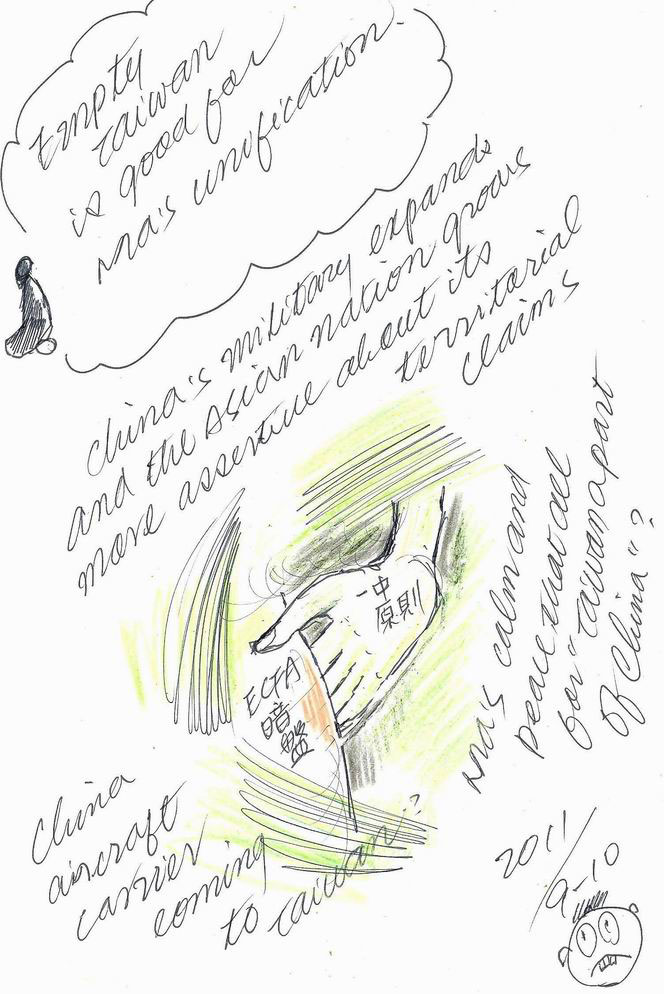 Empty
Taiwan
is good for
Ma's unification.
China's military expands
and the Asian nation grows
more assertive about its
territorial
claims
一中
原則
ECFA
暗
盤
Ma's calm and
peace that all
for "Taiwan a part
of China"?
China
aircraft
carrier
coming
to Taiwan?
2011/
9-10